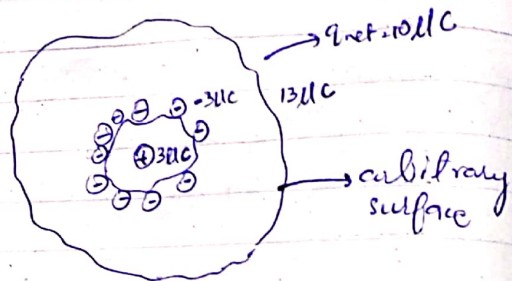 qnet=10μC
-3μC
13μC
⊕3μC
arbitrary
surface